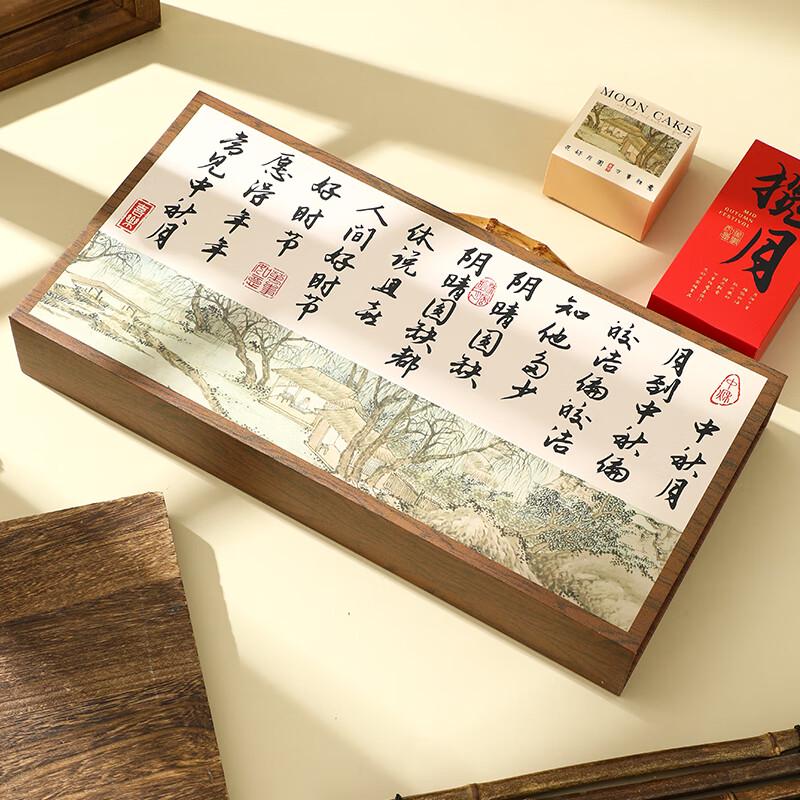 中秋月
月到中秋偏
皎洁偏皎洁
知他多少
阴晴圆缺
阴晴圆缺都
休说且喜
人间好时节
好时节
愿得年年
常见中秋月
中秋
MOON CAKE
花好月圆
万事如意
揽月
MID
AUTUMN
FESTIVAL